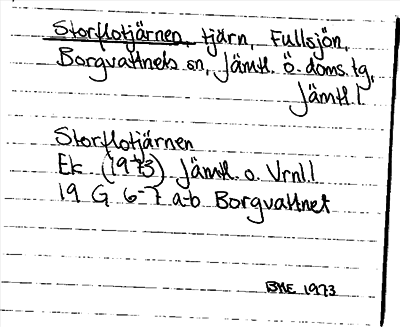 Storflotjärnen, tjärn, Fullsjön,
Borgvattnets sn, Jämtl. Ö. doms. tg,
Jämtl. l.
Storflotjärnen
Ek (1973) Jämtl. o. Vrnl. l
19 G 6-7 a-b Borgvattnet
BHE 1973